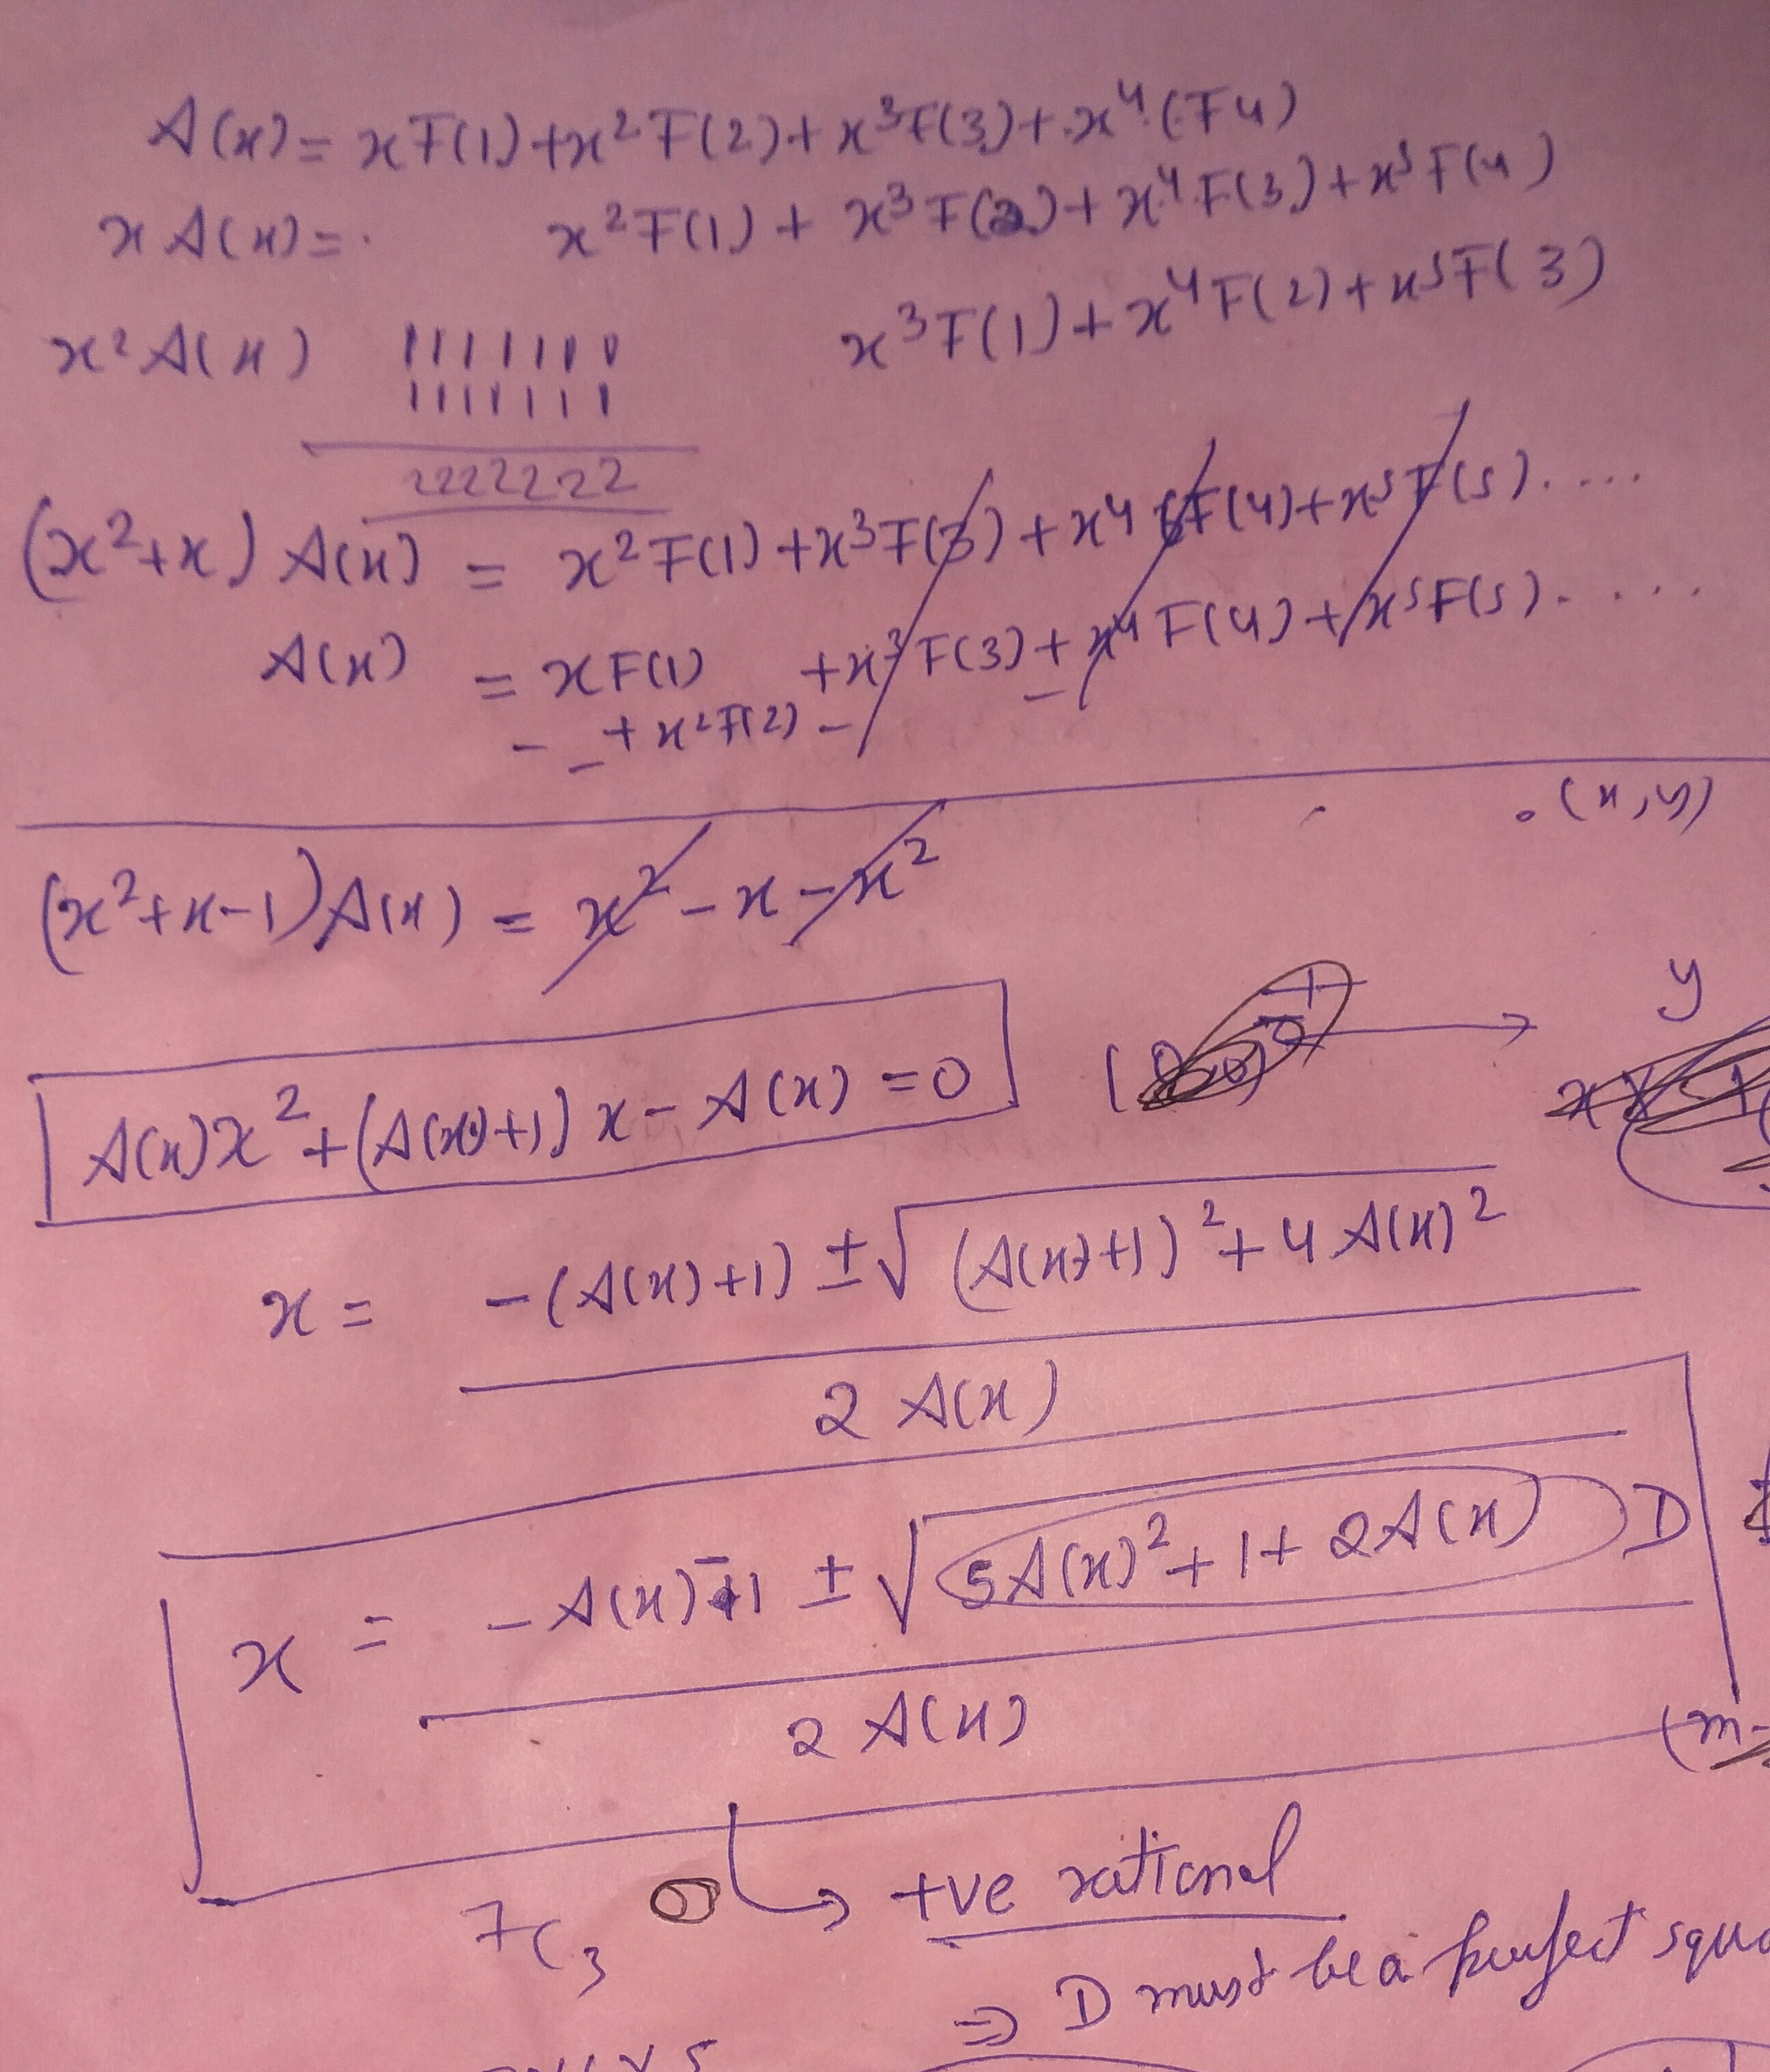 A(x) = xF(1) + x²F(2) + x³F(3) + x⁴(F4)
x A(x) = x²F(1) + x³F(2) + x⁴F(3) + x⁵F(4)
x²A(x) x³F(1) + x⁴F(2) + x⁵F(3)
1111111
1111111
2222222
(x²+x) A(x) = x²F(1) + x³F(3) + x⁴F(4) + x⁵F(5).....
A(x) = xF(1) + x³F(3) + x⁴F(4) + x⁵F(5).....
+ x²F(2)
(x,y)
(x²+x-1)A(x) = x² - x - x²
y
A(x)x² + (A(x)+1)x - A(x) = 0
x = -(A(x)+1) ± √(A(x)+1)² + 4A(x)²
2 A(x)
x = -A(x) - 1 ± √5A(x)² + 1 + 2A(x) D
2 A(x)
(m-
→ +ve rational
7C₃
⇒ D must be a perfect squa